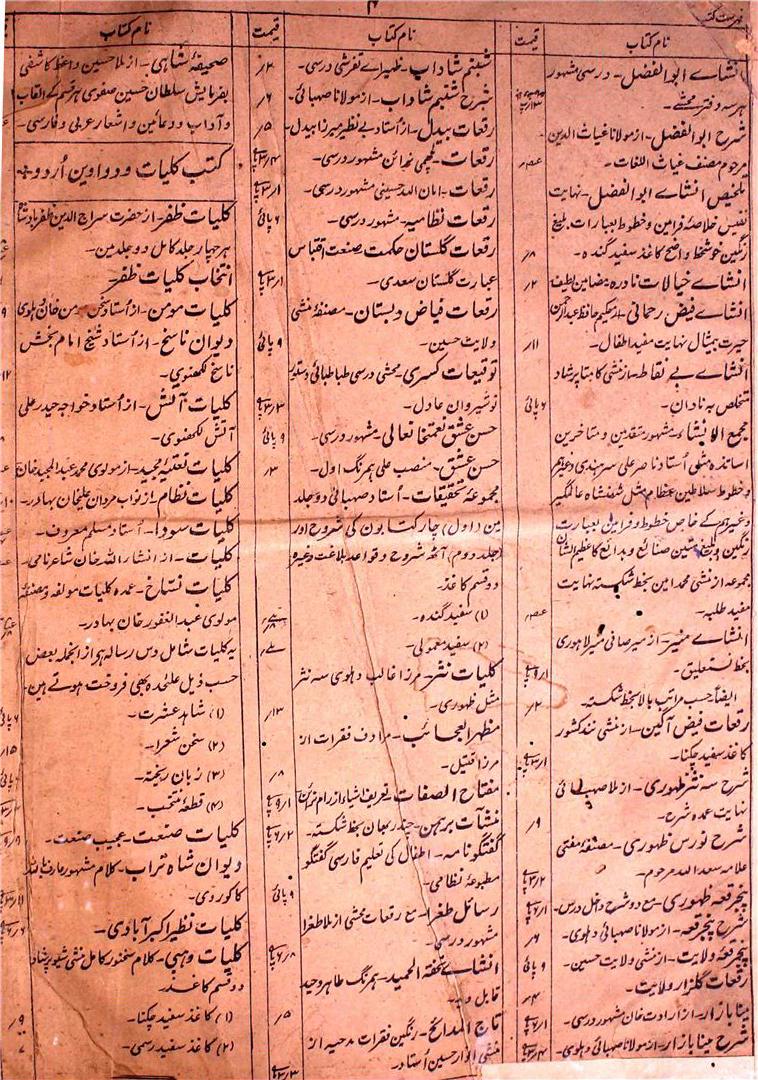 ۲
فہرست کتب
نام کتاب
قیمت
انشاے ابوالفضل۔ درسی مشہور
ہر سہ دفتر محشے۔
شرح ابوالفضل۔ از مولانا غیاث الدین
مرحوم مصنف غیاث اللغات۔
تلخیص انشاے ابوالفضل۔ نہایت
نفیس خلاصۂ فرامین و خطوط بعبارات بلیغ
رنگین خوشخط و واضح کاغذ سفید گندہ۔ ۸؍
انشاے خیالات نادرہ بمضامین لطیف ۲؍
انشاے فیض رحمانی۔ از حکیم حافظ عبدالرحمن
حیرت بیمثال نہایت مفید اطفال۔ ۱۱؍
انشاے بے نقاط۔ از منشی کامتا پرشاد
متخلص بہ نادان۔ ۶ پائی
مجمع الانشاء۔ مشہور متقدمین و متاخرین
اساتذہ مثل اُستاد ناصر علی سرہندی وغیرہم
و خطوط سلاطین عظام مثل شہنشاہ عالمگیر
وغیرہم کے خاص خطوط و فرامین بعبارت
رنگین صنائع و بدائع کا عظیم الشان
مجموعہ از منشی محمد امین بخط شکستہ نہایت
مفید طلبہ۔
انشاے منیر۔ از میر صافی منیر لاہوری
بخط نستعلیق۔
ایضاً حسب مراتب بالا بخط شکستہ۔ ۲؍
رقعات فیض آگین۔ از منشی نند کشور
کاغذ سفید چکنا۔
شرح سہ نثر ظہوری۔ از ملا صہبائی
نہایت عمدہ شرح۔ ۹؍
شرح نورس ظہوری۔ مصنفۂ مفتی
علامہ سعد اللہ مرحوم۔
پنجرقعہ ظہوری۔ مع دو شرح داخل درس۔
شرح پنجرقعہ۔ از مولانا صہبائی دہلوی۔ ۶؍
پنجرقعۂ ولایت۔ از منشی ولایت حسین۔ ۹ پائی
رقعات گلزار ولایت۔ ۴؍
مینا بازار۔ از ارادت خان مشہور درسی۔
شرح مینا بازار۔ از مولانا صہبائی دہلوی۔
نام کتاب
قیمت
شبنم شاداب۔ ظہیراے تفرشی درسی۔ ۳؍
شرح شبنم شاداب۔ از مولانا صہبائی۔ ۶؍
رقعات بیدل۔ از اُستاد بے نظیر میرزا بیدل۔ ۵؍
رقعات۔ لچھمی نرائن مشہور درسی۔
رقعات۔ امان اللہ حسینی مشہور درسی۔
رقعات نظامیہ۔ مشہور درسی۔ ۶ پائی
رقعات گلستان حکمت۔ صنعت اقتباس
عبارت گلستان سعدی۔
رقعات فیاض دبستان۔ مصنفۂ منشی
ولایت حسین۔ ۹ پائی
توقیعات کسری۔ محشی درسی طباطبائی دستور
نوشیروان عادل۔
حسن عشق نعمتخانعالی۔ مشہور درسی۔ ۹ پائی
حسن عشق۔ منصب علی ہمرنگ اول۔ ۳؍
مجموعۂ تحقیقات۔ اُستاد صہبائی دو جلد
مین (اول) چار کتابون کی شروح اور
(جلد دوم) آٹھ شروح و قواعد بلاغت وغیرہ
دو قسم کاغذ۔
(۱) سفید گندہ۔
(۲) سفید معمولی۔
کلیات نثر۔ مرزا غالب دہلوی سہ نثر
مثل ظہوری۔ ۱۳؍
مظہر العجائب۔ مرادف فقرات از
مرزا قتیل۔ ۸؍
مفتاح الصفات۔ تعریف اشیاء از رام نرائن
منشآت برہمن۔ چندربھان بخط شکستہ۔
گفتگو نامہ۔ اطفال کی تعلیم فارسی گفتگو
مطبوعۂ نظامی۔ ۹ پائی
رسائل طغرا۔ مع رقعات محشی از ملا طغرا
مشہور درسی۔
انشاے تحفۃ الحمید۔ ہمرنگ طاہر وحید
قابل دید۔
تاج المدائح۔ رنگین فقرات مدحیہ از ۵؍
منشی انوار حسین اُستاد۔
نام کتاب
صحیفۂ شاہی۔ از ملا حسین واعظ کاشفی
بفرمایش سلطان حسین صفوی ہر قسم کے القاب
و آداب و دعائین و اشعار عربی و فارسی۔
کتب کلیات و دواوین اُردو
کلیات ظفر۔ از حضرت سراج الدین ظفر بادشاہ
ہر چہار جلد کامل دو جلد مین۔
انتخاب کلیات ظفر
کلیات مومن۔ از اُستاد سخن مومن خان دہلوی
دیوان ناسخ۔ از اُستاد شیخ امام بخش
ناسخ لکھنوی۔
کلیات آتش۔ از اُستاد خواجہ حیدر علی
آتش لکھنوی۔
کلیات نعتیہ مجید۔ از مولوی محمد عبدالمجید خان
کلیات نظام۔ از نواب مردان علیخان بہادر۔
کلیات سودا۔ اُستاد مسلم معروف۔
کلیات۔ از انشاء اللہ خان شاعر نامی۔
کلیات نساخ۔ عمدہ کلیات مولفہ و مصنفہ
مولوی عبدالغفور خان بہادر۔
یہ کلیات شامل دس رسالہ ہی از انجملہ بعض
حسب ذیل علٰحدہ بھی فروخت ہوتے ہین۔
(۱) شاہد عشرت۔
(۲) سخن شعرا۔
(۳) زبان ریختہ۔
(۴) قطعۂ منتخب۔
کلیات صنعت۔ عجیب صنعت۔
دیوان شاہ تراب۔ کلام مشہور عارف باللہ
کاکوروی۔
کلیات نظیر اکبرآبادی۔
کلیات وہبی۔ کلام سخنور کامل منشی شیو پرشاد
دو قسم کاغذ
(۱) کاغذ سفید چکنا۔
(۲) کاغذ سفید رسمی۔